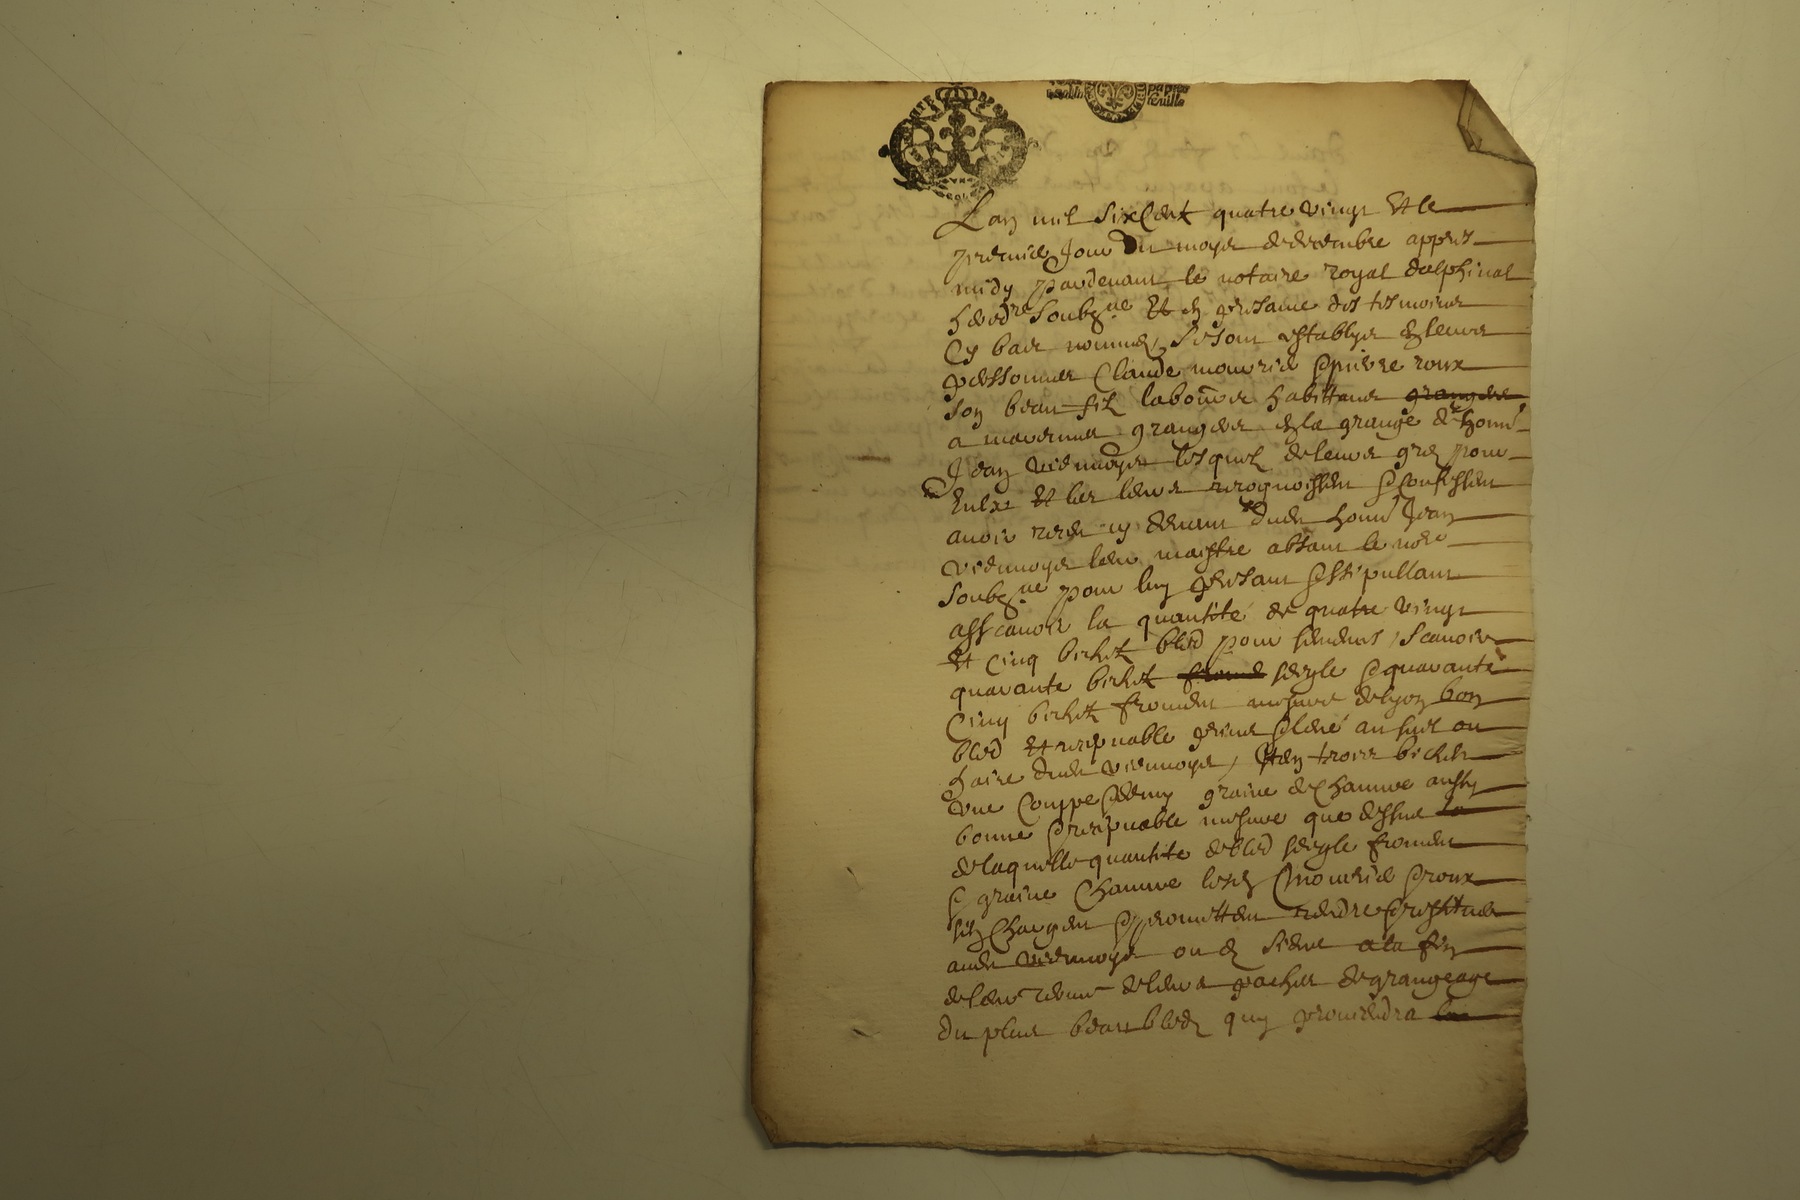 papier
feuille
Lan mil six Cent quatre vingt Et le
premier Jour du moys de decembre appres
midy pardevant le notaire royal delphinal
heredre soubzne Et en presance des tesmoins
Cy bas nommez, se sont establys en leurs
personnes Claude mounier & pierre roux
son beau filz laboureur habittans grangers
a grangers en la grange de honn
Jean viennoys lesquelz de leurs grez pour
Eulx Et les leurs recognoissent & confessent
avoir receu cy devant dudt honn Jean
viennoys leur maistre absant le nore
soubzne pour luy presant & stipullant
assçavoir la quantité de quatre vingt
Et Cinq bichetz bled pour semens, scavoir
quarante bichetz froment seigle & quarante
Cinq bichetz froment mesure de lyon bon
bled Et receptable au
dudt viennoys, Item trois bichetz
une Couppe & demy graine de Chanvre aussy
bonne & receptable mesure que dessus la
de laquelle quantité de bled seigle froment
& graine Chanvre lesdz mounier & roux
se Chargent & promettent rendre & restituer
audt viennoys ou es siens a la fin
de leur de leurs de grangeage
du plus beau bled quy proviendra